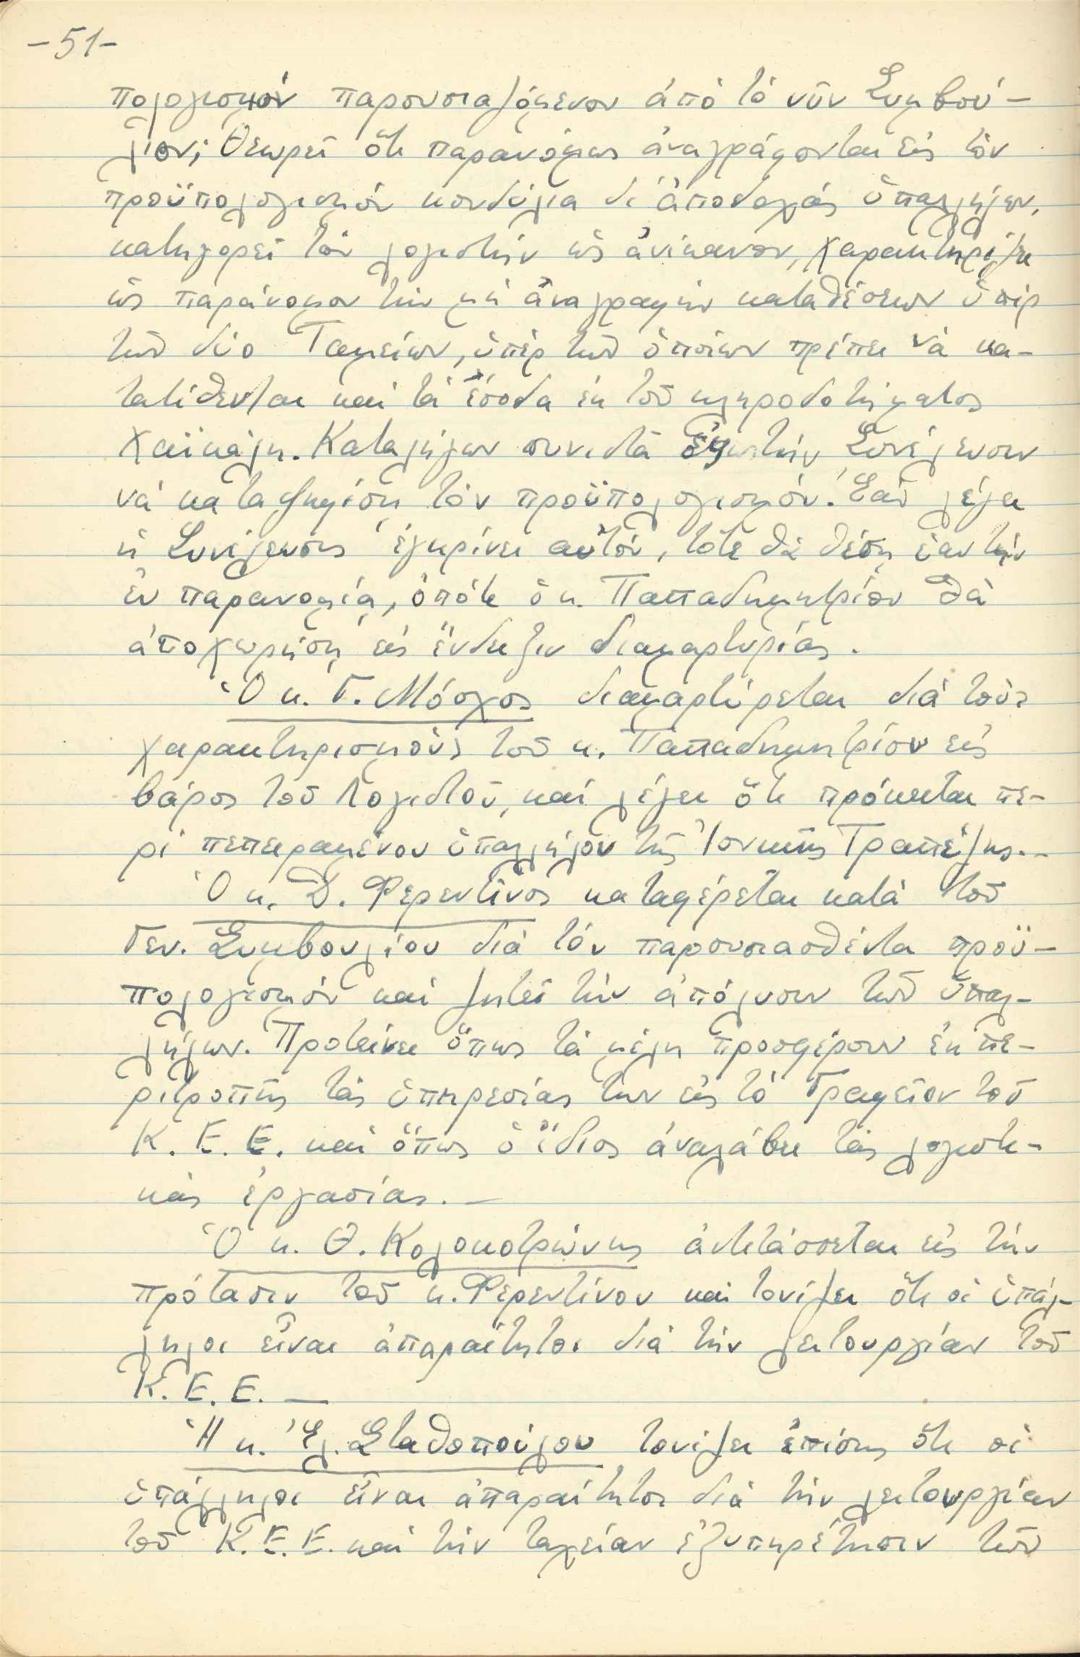 -51-
πολογισμόν παρουσιαζόμενον ἀπό τό νῦν Συμβού-
λιον; Θεωρεῖ ὅτι παρανόμως ἀναγράφονται εἰς τόν
προϋπολογισμόν κονδύλια δι' ἀποδοχάς ὑπαλλήλων,
κατηγορεῖ τόν λογιστήν ὡς ἀνίκανον, χαρακτηρίζει
ὡς παράνομον τήν μή ἀναγραφήν καταθέσεων ὑπέρ
τῶν δύο Ταμείων, ὑπέρ τῶν ὁποίων πρέπει νά κα-
τατίθενται καί τά ἔσοδα ἐκ τοῦ κληροδοτήματος
Χαϊκάλη. Καταλήγων συνιστᾶ εἰς τήν Συνέλευσιν
νά καταψηφίσῃ τόν προϋπολογισμόν. Ἐάν λέγει
ἡ Συνέλευσις ἐγκρίνει αὐτόν, τότε θά θέσῃ ἑαυτήν
ἐν παρανομίᾳ, ὁπότε ὁ κ. Παπαδημητρίου θά
ἀποχωρήσῃ εἰς ἔνδειξιν διαμαρτυρίας.
Ὁ κ. Γ. Μόσχος διαμαρτύρεται διά τούς
χαρακτηρισμούς τοῦ κ. Παπαδημητρίου εἰς
βάρος τοῦ Λογιστοῦ, καί λέγει ὅτι πρόκειται πε-
ρί πεπειραμένου ὑπαλλήλου τῆς Ἰονικῆς Τραπέζης.-
Ὁ κ. Δ. Φερεντῖνος καταφέρεται κατά τοῦ
Γεν. Συμβουλίου διά τόν παρουσιασθέντα προϋ-
πολογισμόν καί ζητεῖ τήν ἀπόλυσιν τῶν ὑπαλ-
λήλων. Προτείνει ὅπως τά μέλη προσφέρουν ἐκ πε-
ριτροπῆς τάς ὑπηρεσίας των εἰς τό Γραφεῖον τοῦ
Κ. Ε. Ε. καί ὅπως ὁ ἴδιος ἀναλάβει τάς λογιστι-
κάς ἐργασίας.-
Ὁ κ. Θ. Κολοκοτρώνης ἀντιτάσσεται εἰς τήν
πρότασιν τοῦ κ. Φερεντίνου καί τονίζει ὅτι οἱ ὑπάλ-
ληλοι εἶναι ἀπαραίτητοι διά τήν λειτουργίαν τοῦ
Κ. Ε. Ε. -
Ἡ κ. Ἑλ. Σταθοπούλου τονίζει ἐπίσης ὅτι οἱ
ὑπάλληλοι εἶναι ἀπαραίτητοι διά τήν λειτουργίαν
τοῦ Κ. Ε. Ε. καί τήν ταχείαν ἐξυπηρέτησιν τῶν